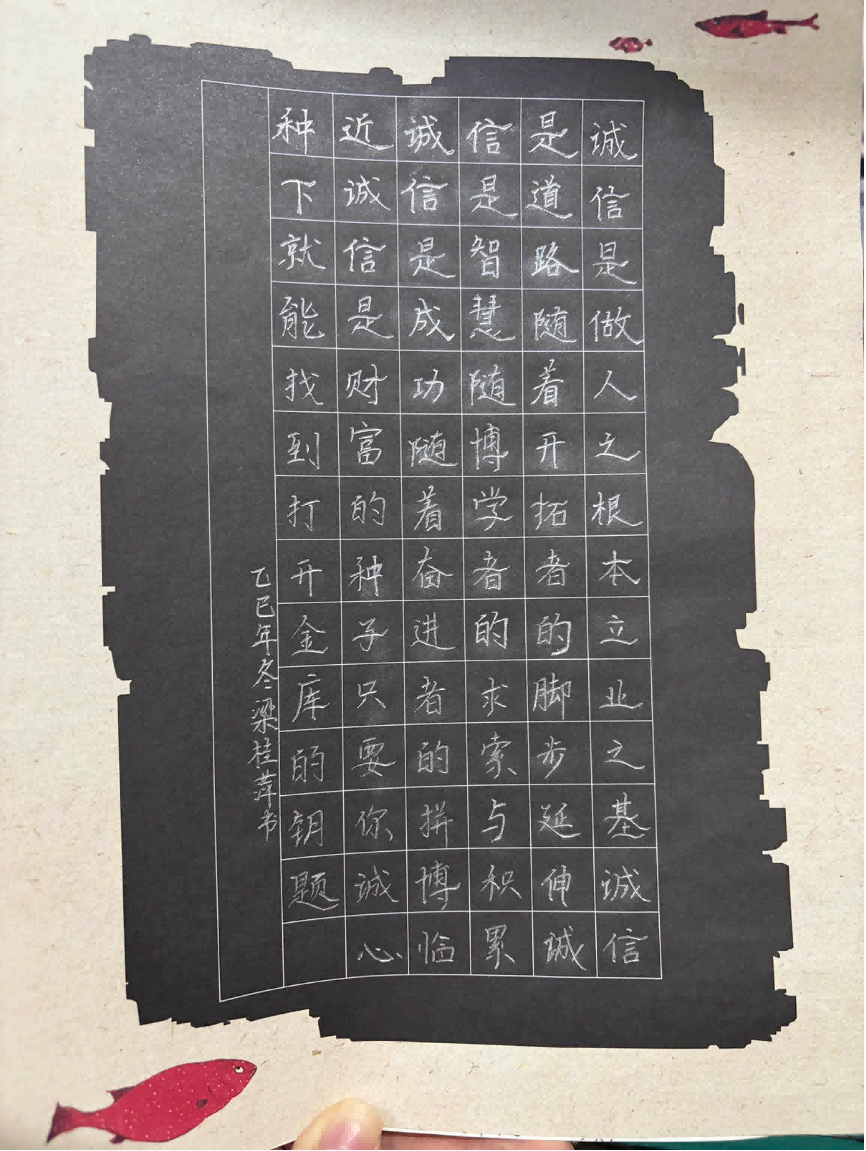 诚信是做人之根本立业之基诚信
是道路随着开拓者的脚步延伸诚
信是智慧随博学者的求索与积累
诚信是成功随着奋进者的拼博临
近诚信是财富的种子只要你诚心
种下就能找到打开金库的钥题
乙巳年冬梁桂萍书